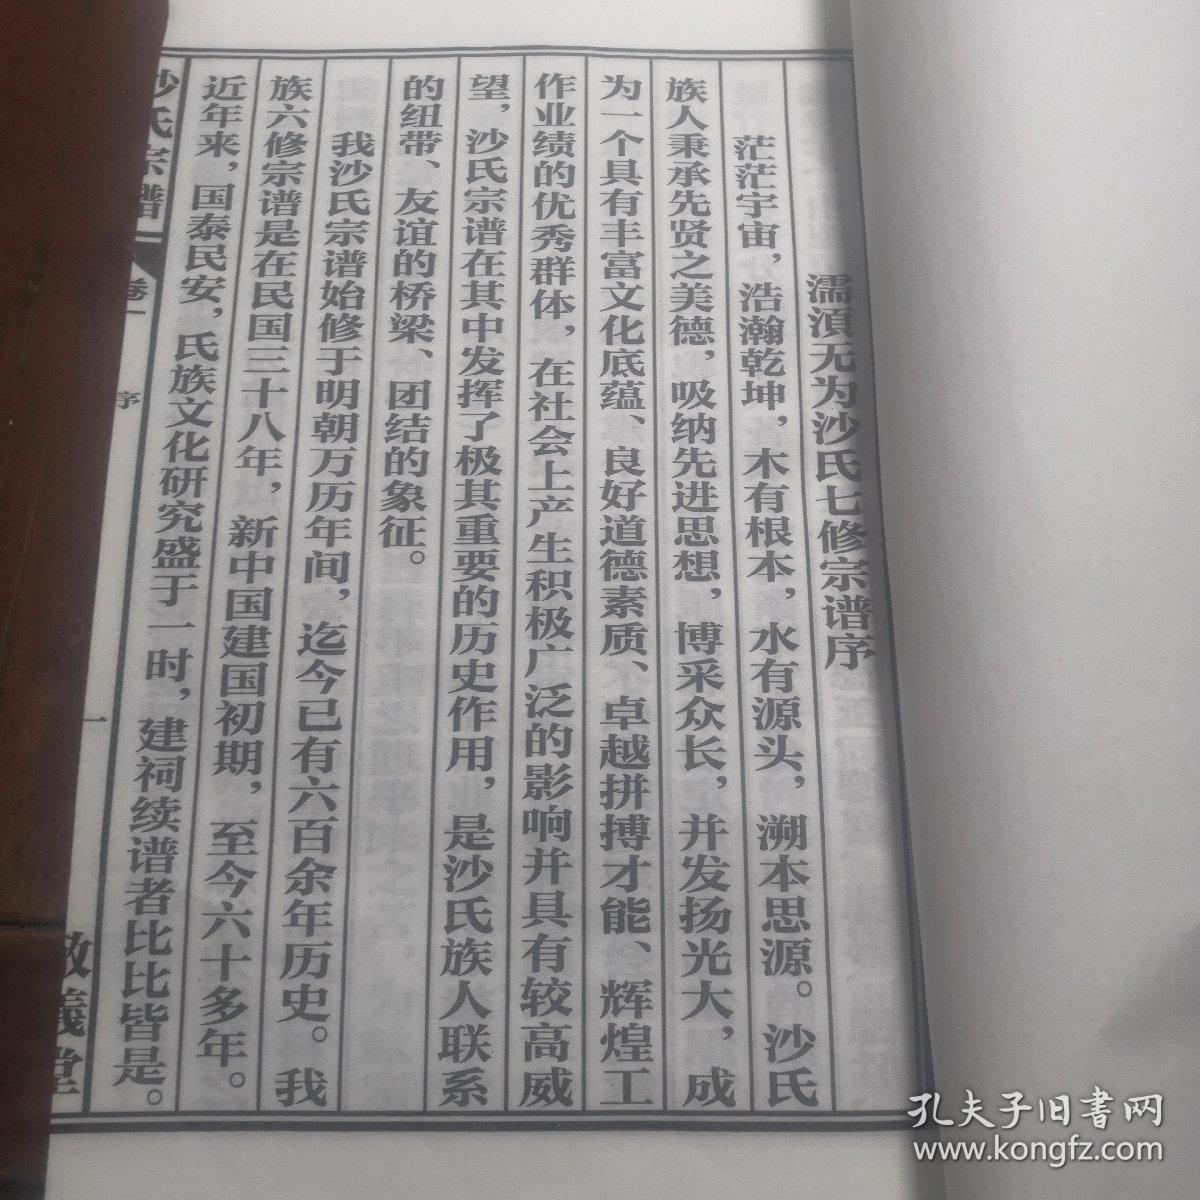 濡湏无为沙氏七修宗谱序
茫茫宇宙，浩瀚乾坤，木有根本，水有源头，溯本思源。沙氏
族人秉承先贤之美德，吸纳先进思想，博采众长，并发扬光大，成
为一个具有丰富文化底蕴、良好道德素质、卓越拼搏才能、辉煌工
作业绩的优秀群体，在社会上产生积极广泛的影响并具有较高威
望，沙氏宗谱在其中发挥了极其重要的历史作用，是沙氏族人联系
的纽带、友谊的桥梁、团结的象征。
我沙氏宗谱始修于明朝万历年间，迄今已有六百余年历史。我
族六修宗谱是在民国三十八年，新中国建国初期，至今六十多年。
近年来，国泰民安，氏族文化研究盛于一时，建祠续谱者比比皆是。
沙氏宗谱
卷一
序
一
敬義堂
孔夫子旧书网
www.kongfz.com